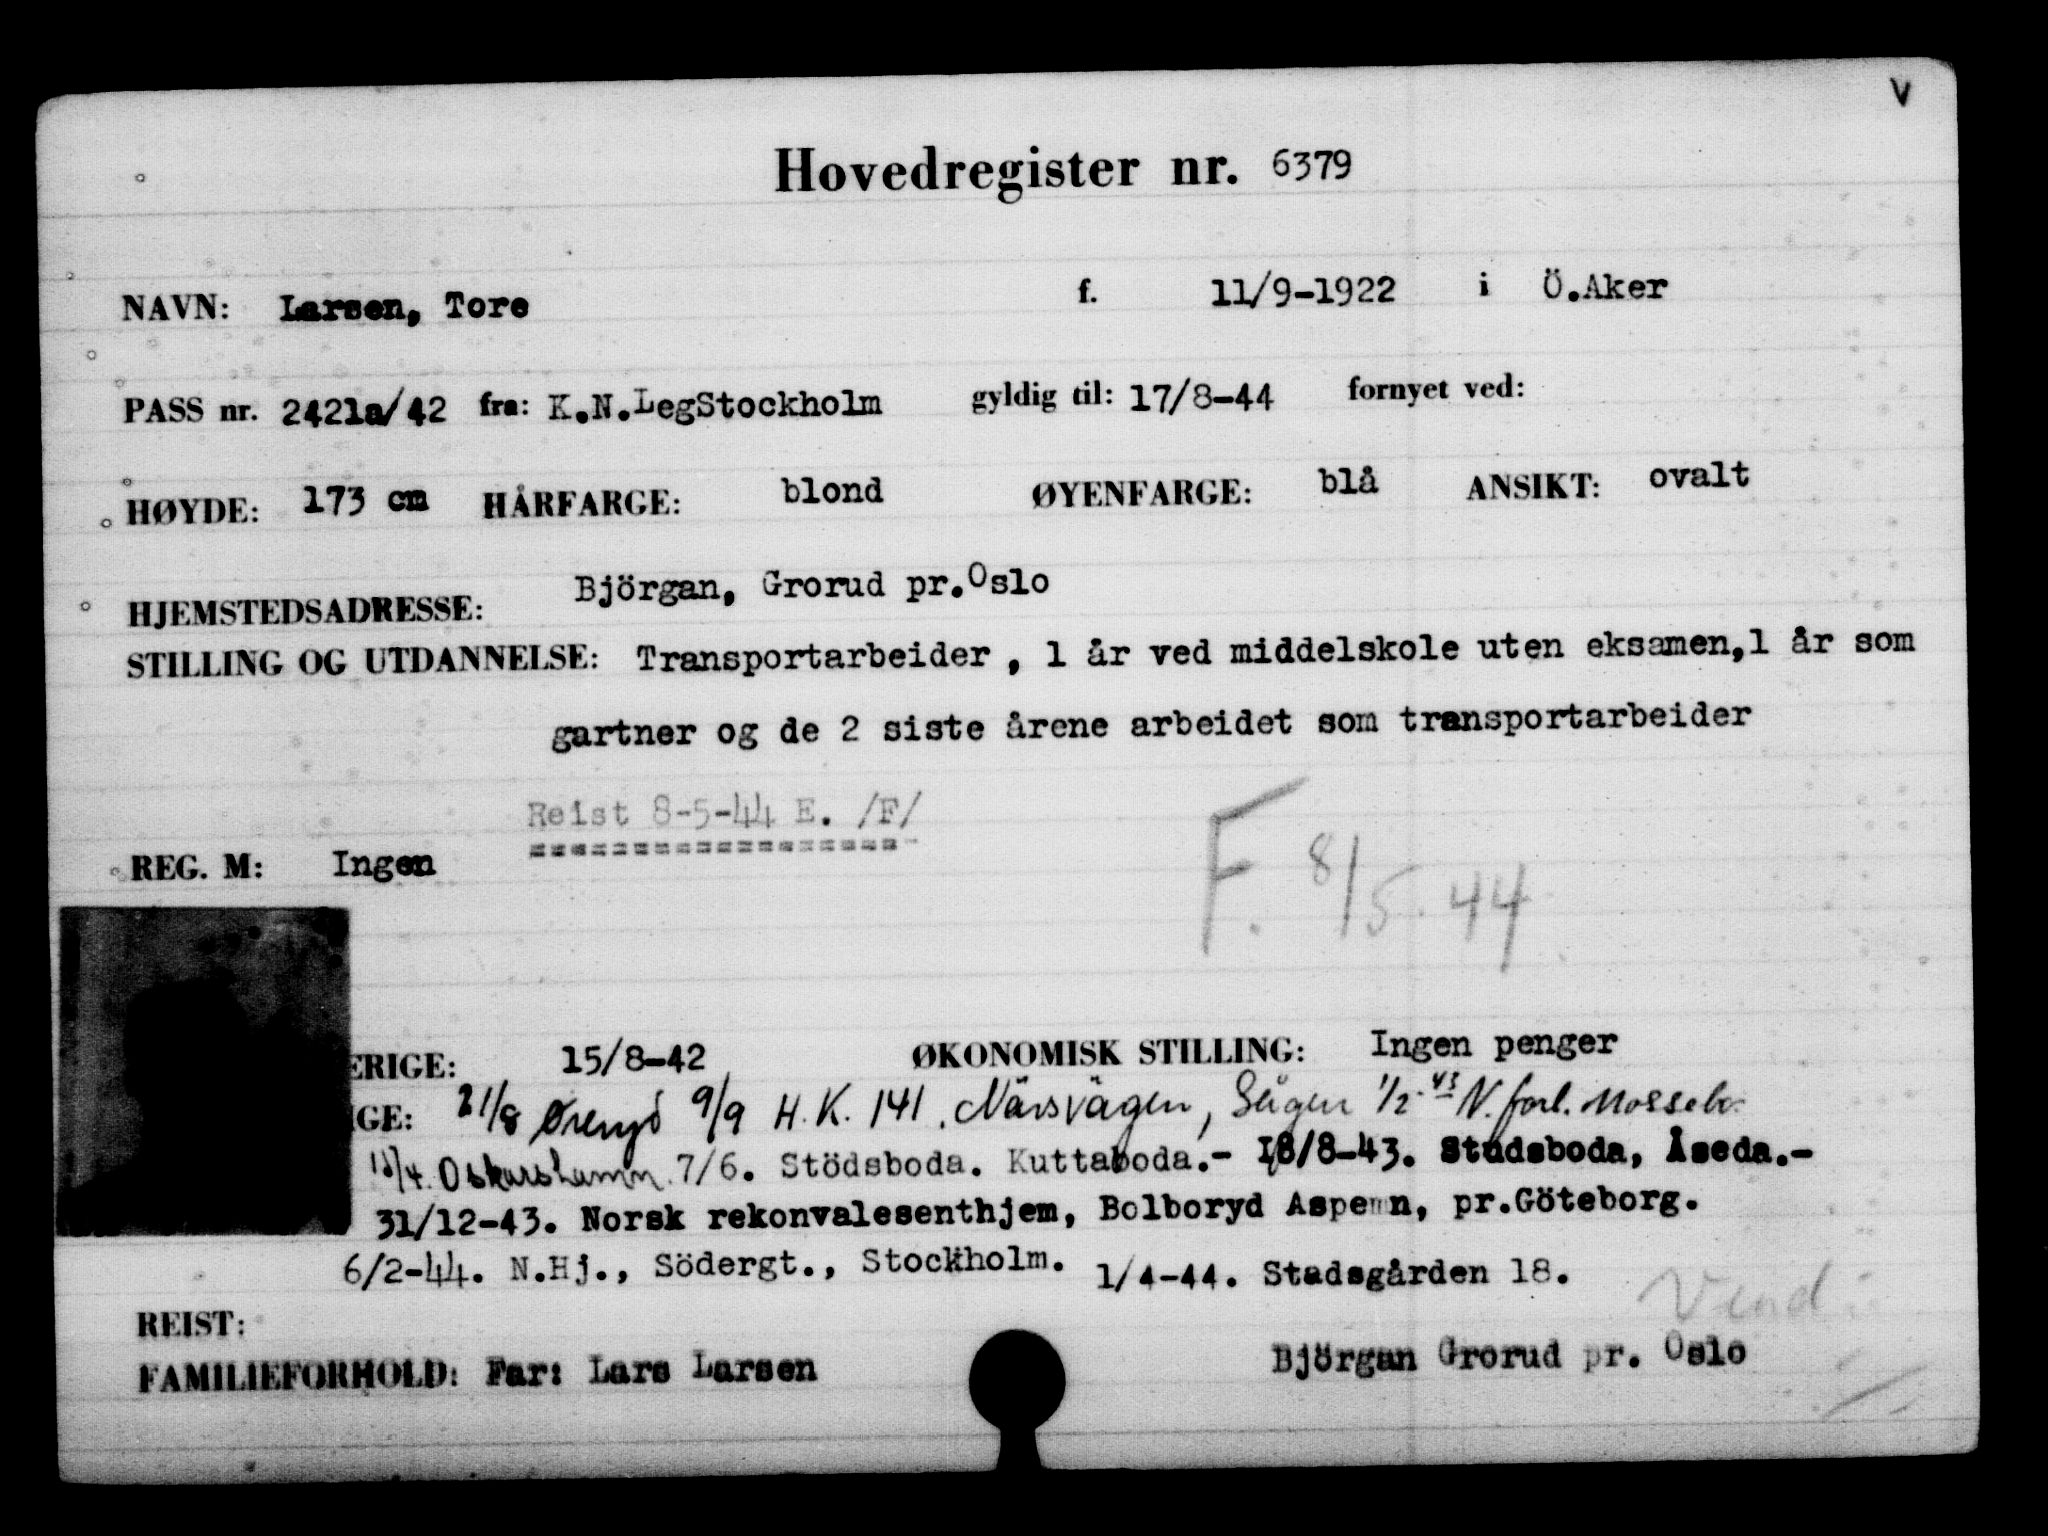 V
Hovedregister nr. 6379
NAVN: Larsen, Tore f. 11/9-1922 i Ö.Aker
PASS nr. 2421a/42 fra: K.N.LegStockholm gyldig til: 17/8-44 fornyet ved:
HØYDE: 173 cm HÅRFARGE: blond ØYENFARGE: blå ANSIKT: ovalt
HJEMSTEDSADRESSE: Björgan, Grorud pr.Oslo
STILLING OG UTDANNELSE: Transportarbeider , 1 år ved middelskole uten eksamen,1 år som
gartner og de 2 siste årene arbeidet som transportarbeider
Reist 8-5-44 E. /F/
REG. M: Ingen
F. 8/5.44
ERIGE: 15/8-42 ØKONOMISK STILLING: Ingen penger
GE: 21/8 Øreryd 9/9 H.K. 141. Närsvägen, 1/2-43 N. forl. Mossebo
Oskarshamn 7/6. Stödsboda. Kuttaboda.- 18/8-43. Studsboda, Åseda.-
31/12-43. Norsk rekonvalesenthjem, Bolboryd Aspenn, pr.Göteborg.
6/2-44. N.Hj., Södergt., Stockholm. 1/4-44. Stadsgården 18.
Vend
REIST:
FAMILIEFORHOLD: Far: Lars Larsen Björgan Grorud pr. Oslo